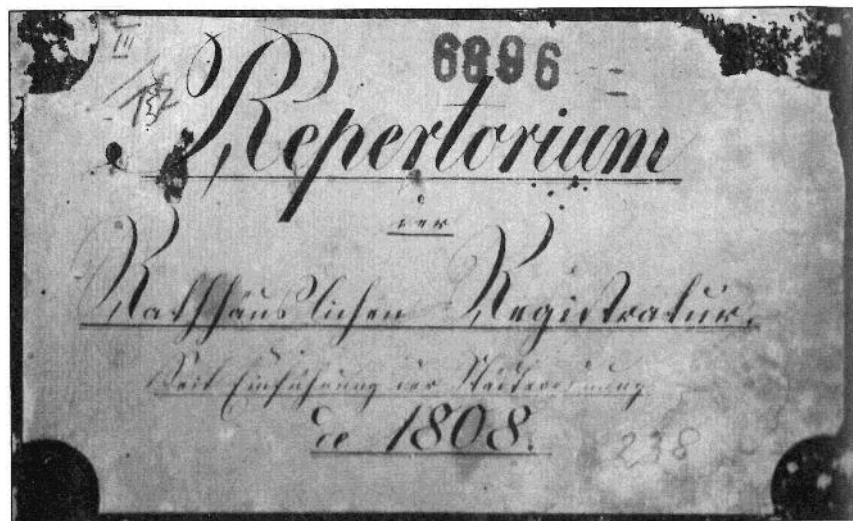 III
6896
Repertorium
der
Rathhäuslichen Registratur.
Seit Einführung der Städteordnung
de 1808.
238